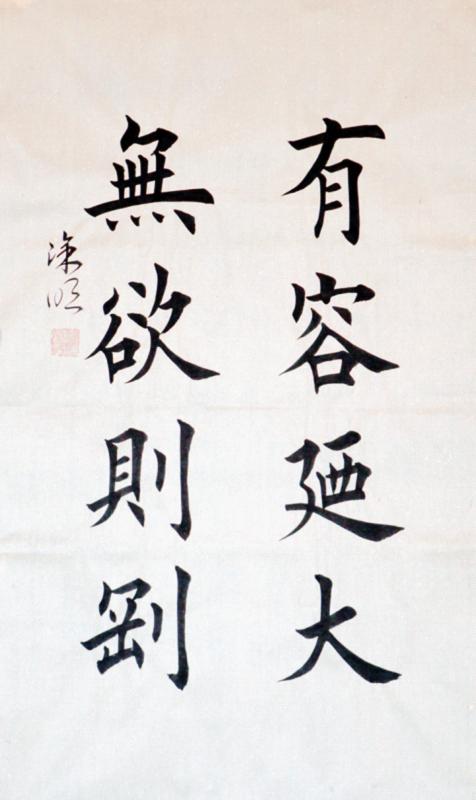 有容廼大
無欲則剛